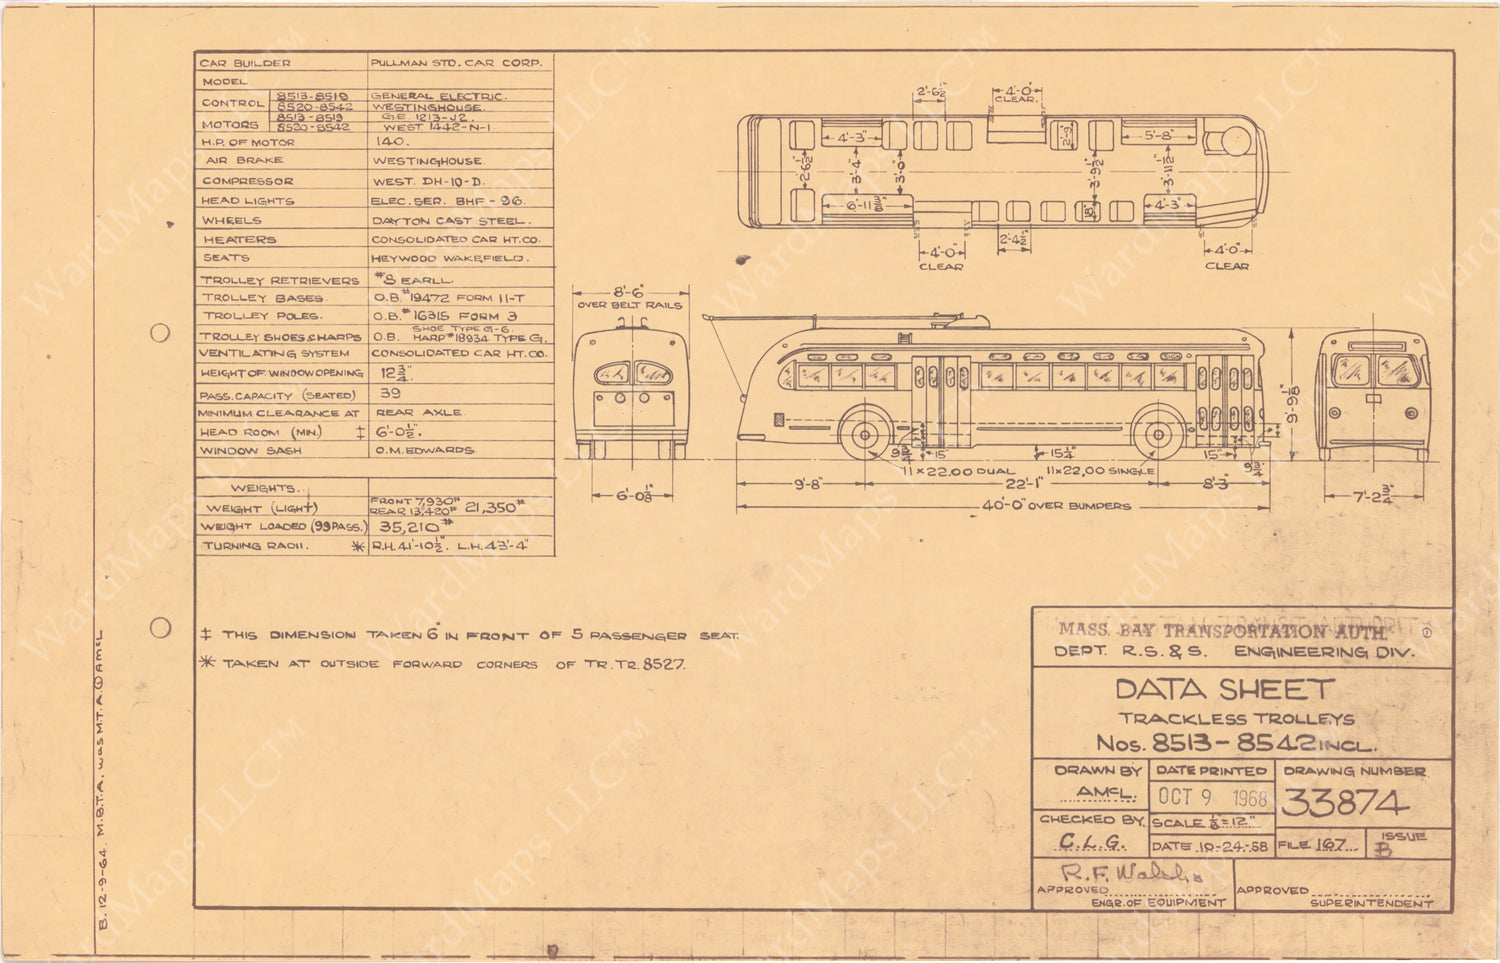 CAR BUILDER PULLMAN STD. CAR CORP.
MODEL
CONTROL 8513-8519 GENERAL ELECTRIC.
8520-8542 WESTINGHOUSE.
MOTORS 8513-8519 G.E. 1213-J2.
8520-8542 WEST. 1442-N-1
H.P. OF MOTOR 140.
AIR BRAKE WESTINGHOUSE.
COMPRESSOR WEST. DH-10-D.
HEAD LIGHTS ELEC. SER. BHF-96
WHEELS DAYTON CAST STEEL.
HEATERS CONSOLIDATED CAR HT. CO.
SEATS HEYWOOD WAKEFIELD.
TROLLEY RETRIEVERS #8 EARLL.
TROLLEY BASES. O.B. #19472 FORM 11-T
TROLLEY POLES. O.B. #16315 FORM 3
TROLLEY SHOES & HARPS O.B. SHOE TYPE G-6.
HARP #18934 TYPE G.
VENTILATING SYSTEM CONSOLIDATED CAR HT. CO.
HEIGHT OF WINDOW OPENING 12 3/4"
PASS. CAPACITY (SEATED) 39
MINIMUM CLEARANCE AT REAR AXLE.
HEAD ROOM (MIN.) ‡ 6'-0 1/2".
WINDOW SASH O.M. EDWARDS.
WEIGHTS.
WEIGHT (LIGHT) FRONT 7,930# REAR 13,420# 21,350#
WEIGHT LOADED (99 PASS.) 35,210#
TURNING RADII. * R.H. 41'-10 1/2". L.H. 43'-4"
2'-6 1/2"
4'-0"
CLEAR.
4'-3"
2'-9"
5'-8"
2'-6 1/2"
3'-4"
3'-0"
3'-9 1/2"
3'-11 1/2"
6'-11 3/8"
18"
4'-3"
4'-0"
CLEAR
2'-4 1/2"
4'-0"
CLEAR
8'-6"
OVER BELT RAILS
6'-0 1/8"
9'-9 1/8"
9 3/4"
15"
15 1/4"
15"
9 3/4"
11 x 22.00 DUAL
11 x 22.00 SINGLE
9'-8"
22'-1"
8'-3"
40'-0" OVER BUMPERS
7'-2 3/4"
‡ THIS DIMENSION TAKEN 6" IN FRONT OF 5 PASSENGER SEAT.
* TAKEN AT OUTSIDE FORWARD CORNERS OF TR. TR. 8527.
B. 12-9-64. M.B.T.A. was M.T.A. ① AMcL
MASS. BAY TRANSPORTATION AUTH. ①
DEPT. R.S. & S. ENGINEERING DIV.
DATA SHEET
TRACKLESS TROLLEYS
Nos. 8513-8542 INCL.
DRAWN BY
AMcL.
DATE PRINTED
OCT 9 1968
DRAWING NUMBER
33874
CHECKED BY.
C.L.G.
SCALE 1/8"=12"
DATE 10-24-58
FILE 167
ISSUE
B
R.F. Walsh
APPROVED
ENGR. OF EQUIPMENT
APPROVED
SUPERINTENDENT
WardMaps LLC™